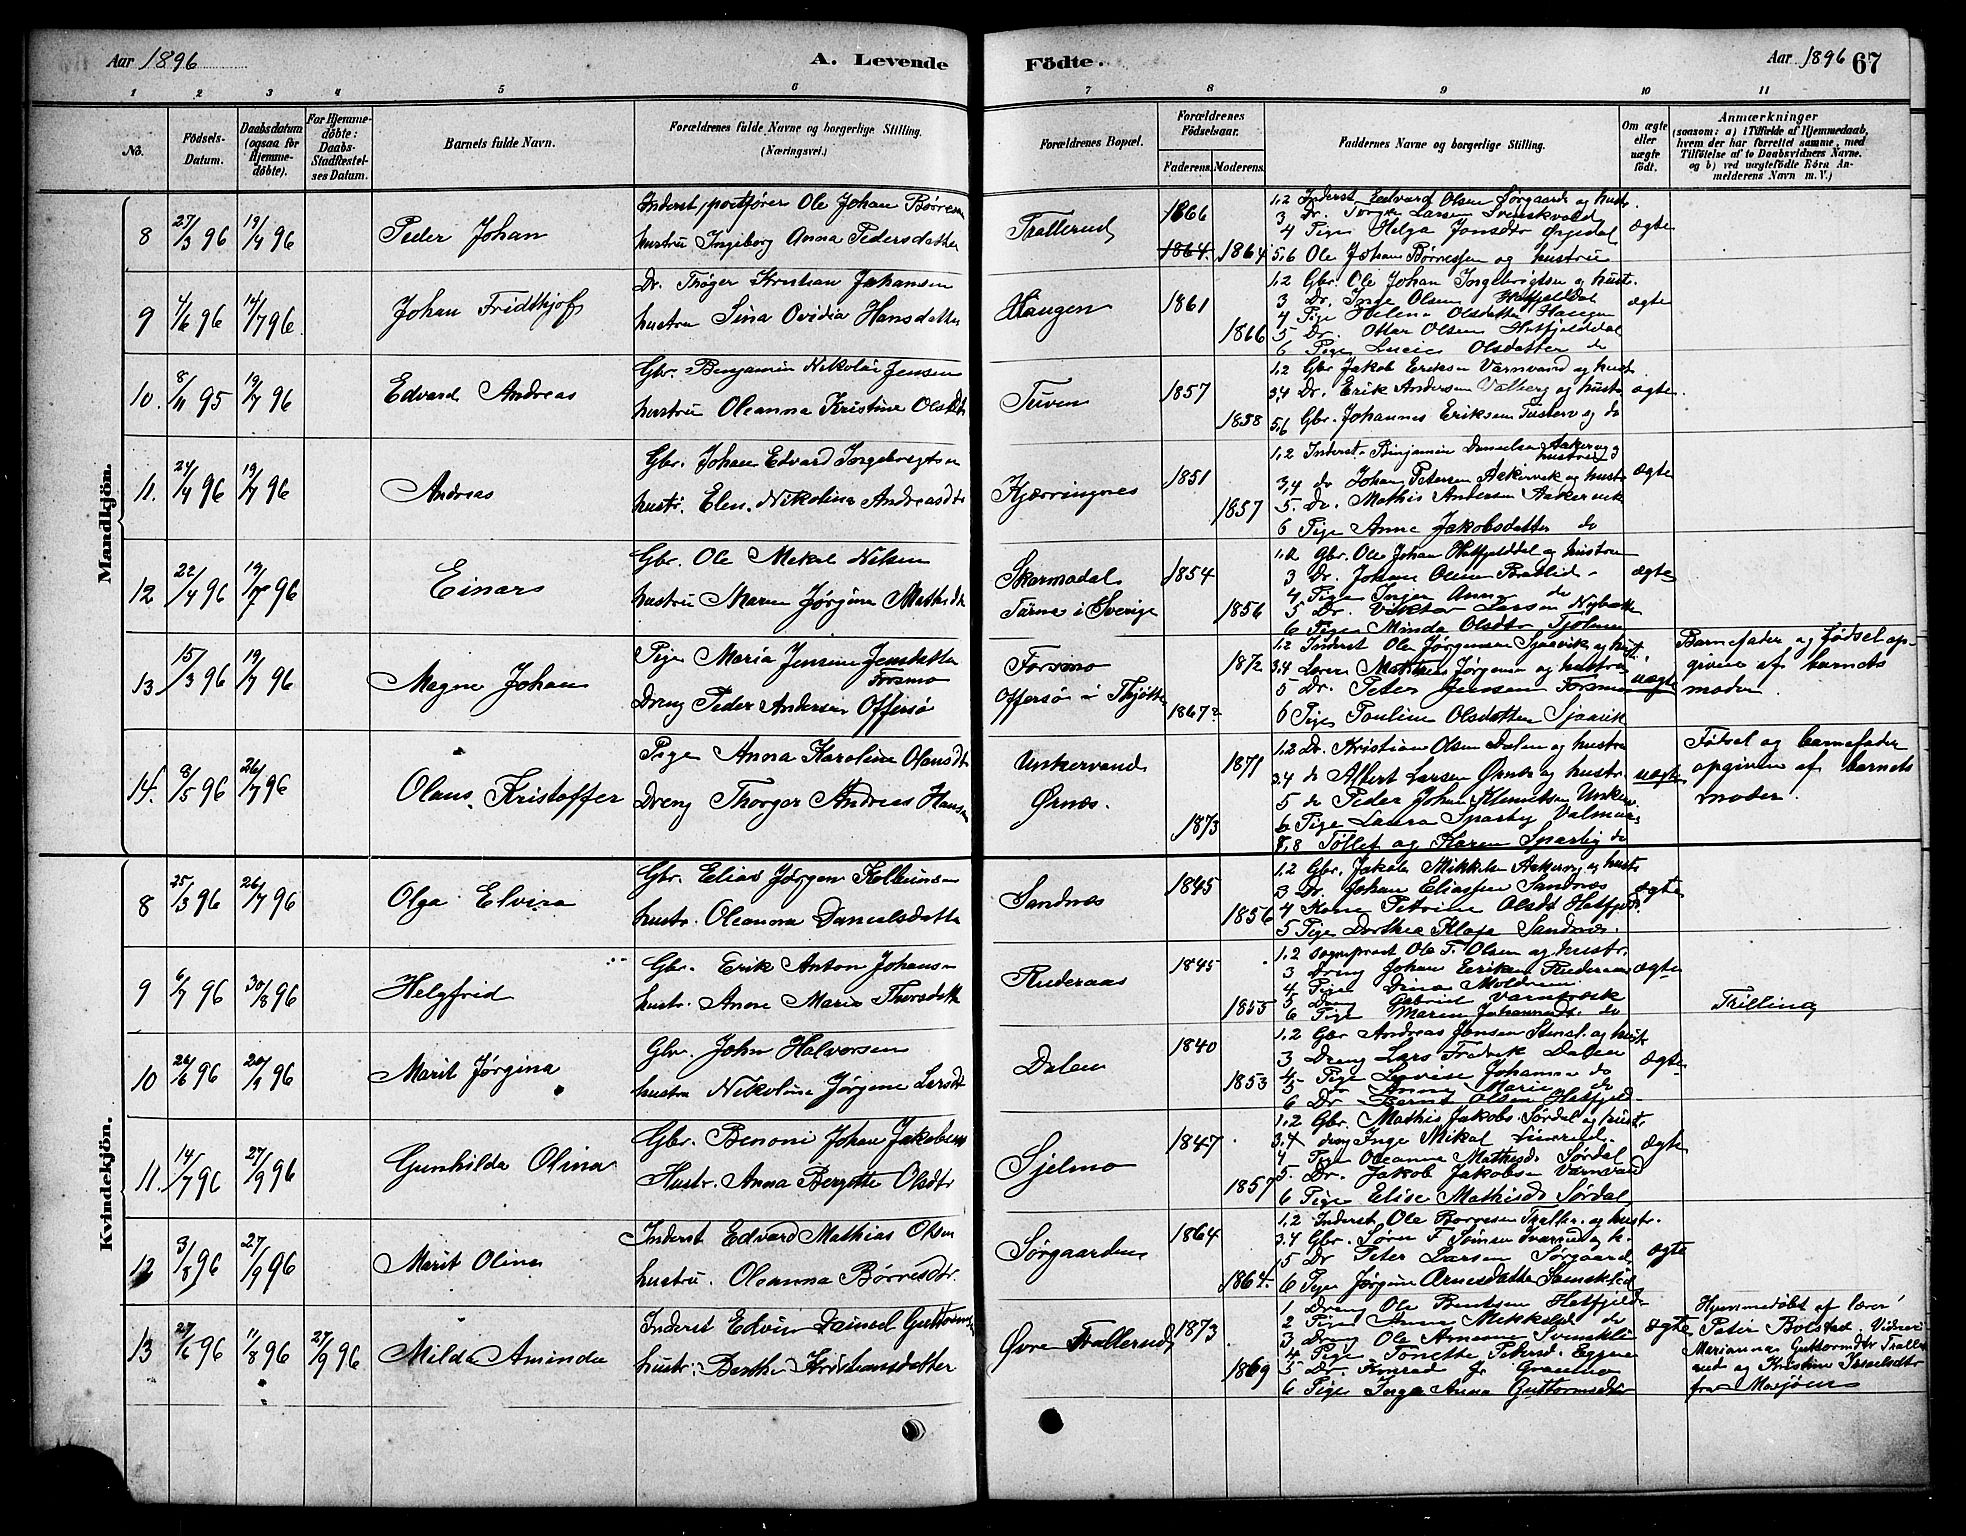 Aar 1896
A. Levende
Födte.
Aar 1896 67
1 2 3 4 5 6 7 8 9 10 11
No.
Födsels-Datum.
Daabsdatum (ogsaa for Hjemme-döbte).
For Hjemme-döbte: Daabs-Stadfæstel-ses Datum.
Barnets fulde Navn.
Forældrenes fulde Navne og borgerlige Stilling.
(Næringsvei.)
Forældrenes Bopæl.
Forældrenes Födselsaar.
Faderens. Moderens.
Faddernes Navne og borgerlige Stilling.
Om ægte eller uægte födt.
Anmærkninger
(saasom: a) i Tilfælde af Hjemmedaab, hvem der har forrettet samme, med Tilföielse af to Daabsvidners Navne. og b) ved uægtefödte Börn An-melderens Navn m. V.)
Mandkjön.
8 27/3 96 19/4 96 Peder Johan
Inderst, postfører Ole Johan Børresen
hustru Ingeborg Anna Pedersdatter
Trallerud 1866 1864 1864
1,2 Inderst Edvard Olsen Sørgaard og hustr
3 Dr. Larsen
4 Pige Helga Jonsdtr
5,6 Ole Johan Børnessen og hustru
ægte
9 4/6 96 14/7 96. Johan Fridthjof
Dr. Thøger Kristian Johansen
hustru Sina Ovidia Hansdatter
Haugen 1861 1866
1,2 Gbr. Ole Johan Ingebrigtsen og hust.
3 Dr. Inge Olsen Hatfjelddal
4 Pige Helena Olsdatter Haugen
5 Dr. Ottar Olsen Hatfjelddal
6 Pige Lucie Olsdatter do
ægte
10. 8/11 95 19/7 96 Edvard Andreas
Gbr. Benjamin Nikolai Jensen
hustru Oleanna Kristine Olsdtr
Tuven 1857 1858
1,2 Gbr Jakob Eriksen Varnvand og hust.
3,4 Dr. Erik Andersen Valberg og hustr
5,6 Gbr. Johannes Eriksen og do
ægte.
11. 24/4 96 19/7 96 Andreas
Gbr. Johan Edvard Ingebrigtsen
hustr. Elen Nikolina Andreasdtr
Kjærringnes 1851 1857
1,2 Inderst Binjamin Danielsen Aakervig og hustru
3,4 do Johan Petersen Aakervik og hustr
5. Dr. Mathis Andersen Aakervik
6 Pige Anne Jakobsdatter do
ægte
12 22/4 96 19/7 96 Einar
Gbr. Ole Mekal Nilsen
hustru Maren Jørgine Mathisdtr
Skarmodal
Tärna i Sverige 1854 1856
1,2 Gbr. Ole Johan Hatfjelddal og hustru
3 Dr. Johan Olsen
4 Pige Inger Anna do
5 Dr. Viktor Larsen
6 Pige Minda Olsdtr
ægte
13 15/3 96 19/7 96 Magne Johan
Pige Maria Jensine Jensdatter Forsmo
Dreng Peder Andersen Offersø
Forsmo
Offersø i Thjøtta 1872 1867?
1,2 Inderst Ole Jørgensen Sjaavik og hust.
3,4 Jørgensen og hustru
5 Dr. Peter Jensen Forsmo
6 Pige Pauline Olsdatter Sjaavik
uægte
Barnefader og fødsel op-
given af barnets
moder.
14. 8/5 96 26/7 96 Olaus Kristoffer
Pige Anna Karoline Olausdtr
Dreng Thorger Andreas Hansen
Unkervand
Ørnæs. 1871 1873
1,2 Dr. Kristian Olsen Dalen og hustru
3,4 do Albert Larsen Ørnæs og hustr.
5 do Peder Johan Klemetsen Unkerv.
6 Pige Laura Sparby
7,8 Tollef og Karen Sparby do
uægte
Fødsel og barnefader
opgiven af barnets
moder.
Kvindekjön.
8 25/3 96 26/7 96 Olga Elvira
Gbr. Elias Jørgen
hustr. Oleanna Danielsdatter
Sandnæs 1845 1856
1,2 Gbr. Jakob Mikkelsen Aakervig og hustr
3 Dr. Johan Eliassen Sandnæs
4 Kone Petrine Olsdt Hatfjeld.
5 Pige Dorthea Sandnæs.
ægte
9 6/7 96 30/8 96 Helgfrid
Gbr. Erik Anton Johansen
hustr. Anne Marie
Ruderaas 1845 1855
1,2 sogneprest Ole F. Olsen og hustr.
3 Dreng Johan Eriksen Ruderaas
4 Pige Dina
5 Dreng Gabriel
6 Pige Maren Johannesdt. do
ægte
Trilling
10 26/6 96 20/9 96 Marit Jørgina
Gbr. John Halvorsen
hustru Nikoline Jørgine Larsdtr
Dalen 1840 1853
1,2 Gbr Andreas Jensen og hustr
3 Dreng Lars Fredrik Dalen
4 Pige Lovise Johanna do
5 Marie do
6 Dr. Olsen Hatfjeld
ægte
11. 14/7 96 27/9 96 Gunhilda Olina
Gbr. Benoni Johan Jakobsen
Hustr. Anna Bergitte Olsdtr
Sjelmo 1847 1857
1,2 Gbr. Mathis Jakobs. Sørdal og hust.
3,4 dreng Inge Mikal
4 Pige Oleanna Mathisdt Sørdal
5. Dr. Jakob Jakobsen Varnvand
6 Pige Elise Mathisdt Sørdal
ægte
12 3/8 96 27/9 96 Marit Olina
Inderst Edvard Mathias Olsen
hustru. Oleanna Børresdtr.
Sørgaarden 1864 1864.
1,2 Inderst Ole Børresen Traller. og hustr.
3,4 Gbr. Søren
5 Dr Peter Larsen Sørgaard
6 Pige Jørgine Arnesdatter
ægte
13 27/6 96 11/8 96 27/9 96 Milda Aminda
Inderst Edvin Daniel Guttormsen
hustr. Berthe Kristiansdatter
Øvre Trallerud 1873 1869
1 Dreng Ole Bentsen Hatfjeld
2 Pige Anna Mikkelsd do
3 Dreng Ole
4 Pige Tonette Petersd.
5 Dr. Konrad
6 Pige Inga Anna Guttormsdtr
ægte
Hjemmedøbt af lærer
Peter Bolstad. Vidner
Marianna Guttormsdtr Traller-
rud og Kristine Israelsdtr
fra Mosjøen